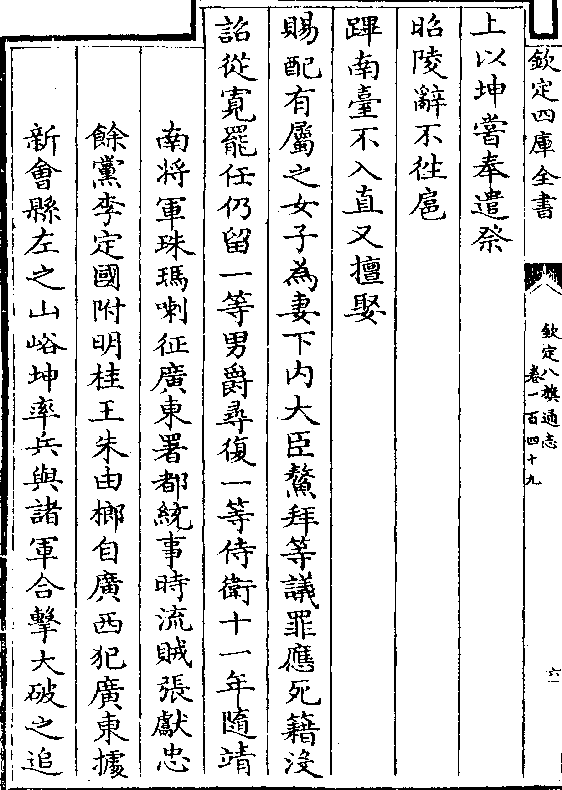 欽定四庫全書
欽定八旗通志
卷一百四十九
六
上以坤嘗奉遣祭
昭陵辭不徃扈
蹕南臺不入直又擅娶
賜配有屬之女子為妻下内大臣鰲拜等議罪應死籍没
詔從寛罷任仍留一等男爵尋復一等侍衛十一年隨靖
南將軍珠瑪喇征廣東署都統事時流賊張獻忠
餘黨李定國附明桂王朱由榔自廣西犯廣東據
新會縣左之山峪坤率兵與諸軍合擊大破之追